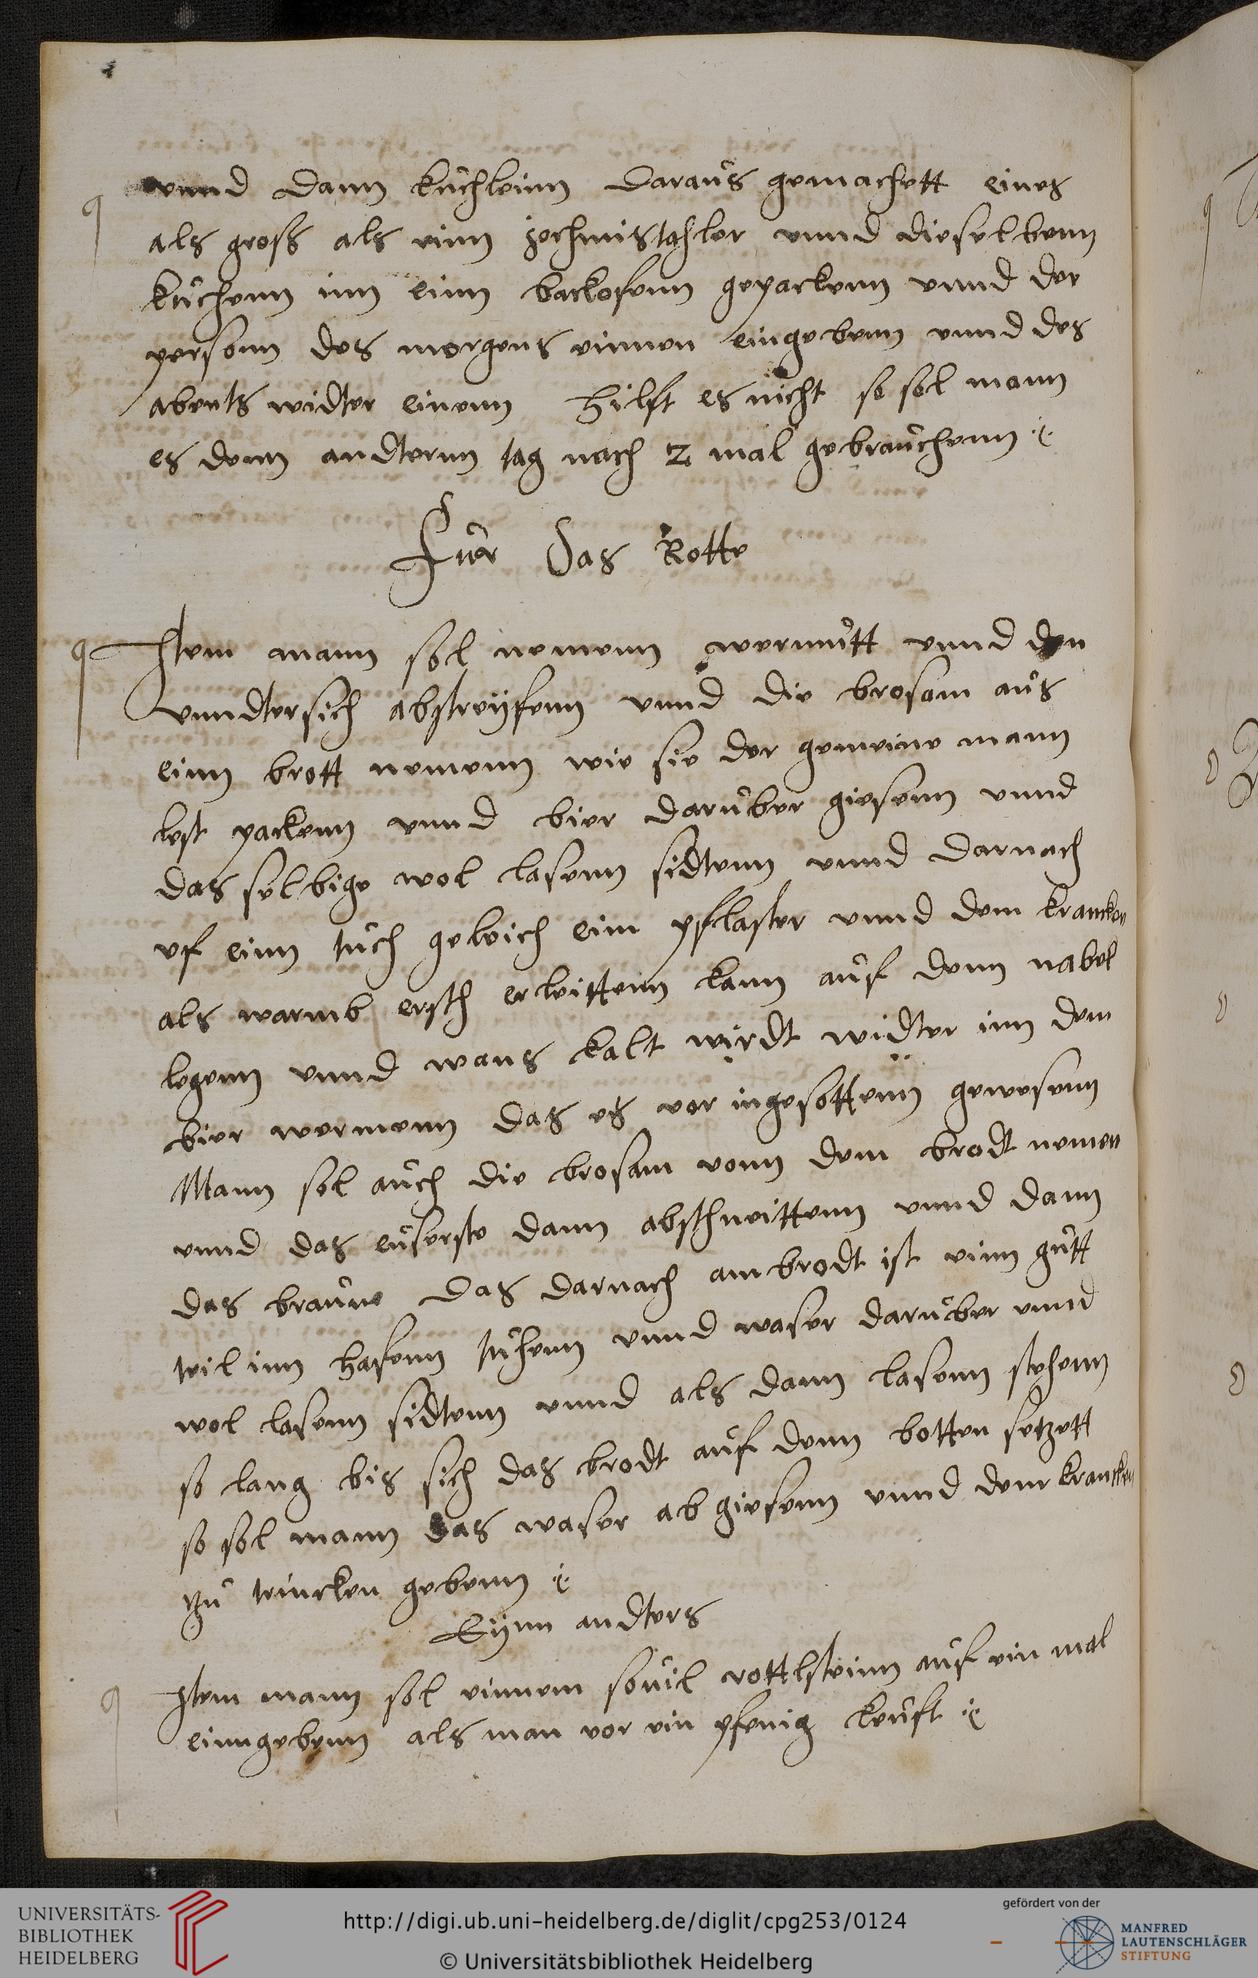 vnnd dann kuchleinn daraus gemachett eines
als gross als einn jochimistahler vnnd dieselbenn
kuchenn inn einn backofenn gepackenn vnnd der
personn des morgens einnen eingebenn vnnd des
abents widter einenn hilft es nicht so sol mann
es denn andternn tag noch 2 mal gebrauchenn
Fur Das Rotte
Item mann sol nemenn wermutt vnnd den
vnndtersich abstreyfenn vnnd die brosam aus
einn brott nemenn wie sie der gemeine mann
lest packenn vnnd bier daruber giesenn vnnd
das selbige wol lasenn sidtenn vnnd darnach
vf einn tuch geleich eim pflaster vnnd dem krancken
als warmb ersch erleittenn kann auf denn nabel
legenn vnnd wans kalt wirdt widter inn dem
bier wermenn das es vor ingesottenn gewesenn
Mann sol auch die brosam vonn dem brodt nemen
vnnd das euserste dann abschneittenn vnnd dann
das braune das darnach am brodt ist einn gutt
teil inn hafenn tuhenn vnnd waser daruber vnnd
wol lasenn sidtenn vnnd als dann lasenn stehenn
so lang bis sich das brodt auf denn botten setzett
so sol mann das waser ab giesenn vnnd dem krancken
zu trincken gebenn
Eynn andters
Item mann sol einnem souil rottlsteinn auf ein mal
einngebenn als man vor ein pfenig keuft
UNIVERSITÄTS-
BIBLIOTHEK
HEIDELBERG
http://digi.ub.uni-heidelberg.de/diglit/cpg253/0124
© Universitätsbibliothek Heidelberg
gefördert von der
MANFRED
LAUTENSCHLÄGER
STIFTUNG